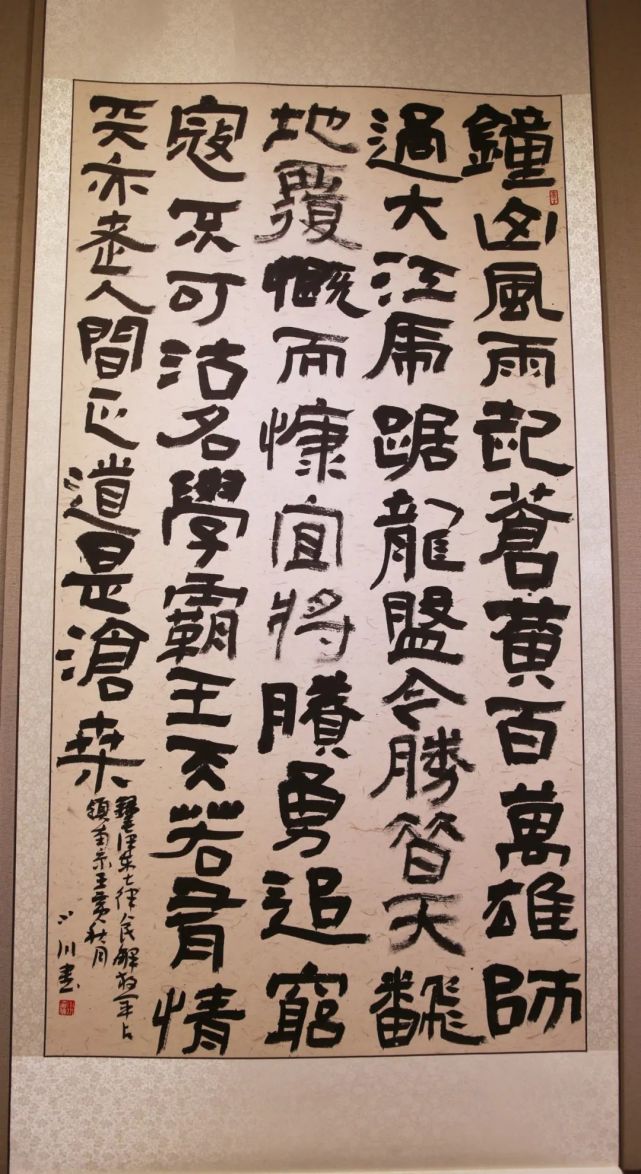 鐘山風雨起蒼黃百萬雄師
過大江虎踞龍盤今勝昔天飜
地覆慨而慷宜將賸勇追窮
寇不可沽名學霸王天若有情
天亦老人間正道是滄桑
錄毛澤東七律人民解放軍占
領南京壬寅秋月
川書